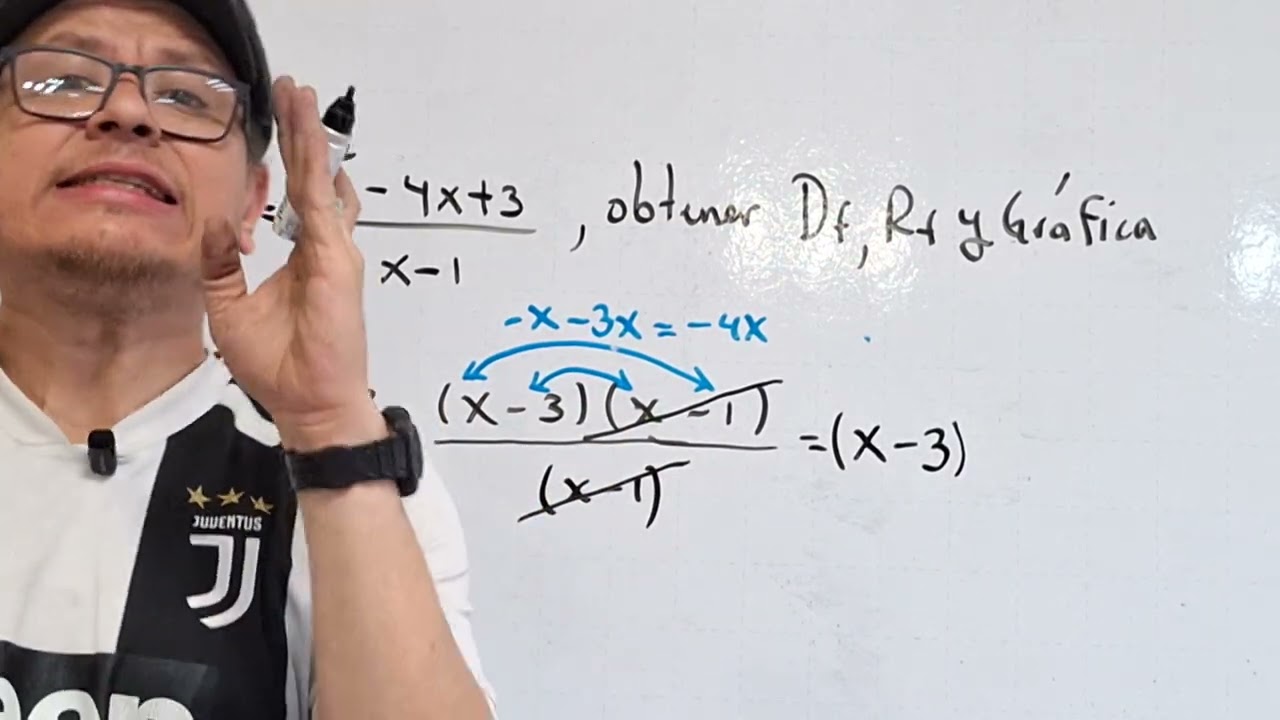 = - 4x+3 , obtener Df, Rf y Gráfica
x-1
-x-3x=-4x
(x-3)(x-1) =(x-3)
(x-1)
JUVENTUS
J